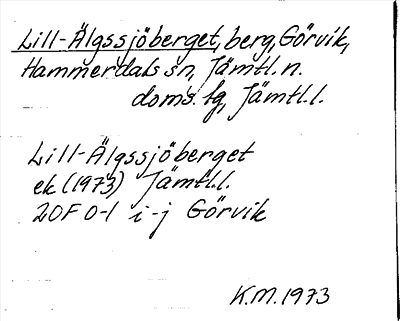 Lill-Älgssjöberget, berg, Görvik,
Hammerdals sn, Jämtl. n.
doms. lg, Jämtl.l.
Lill-Älgssjöberget
ek (1973) Jämtl.l.
20F 0-1 i-j Görvik
K.M. 1973